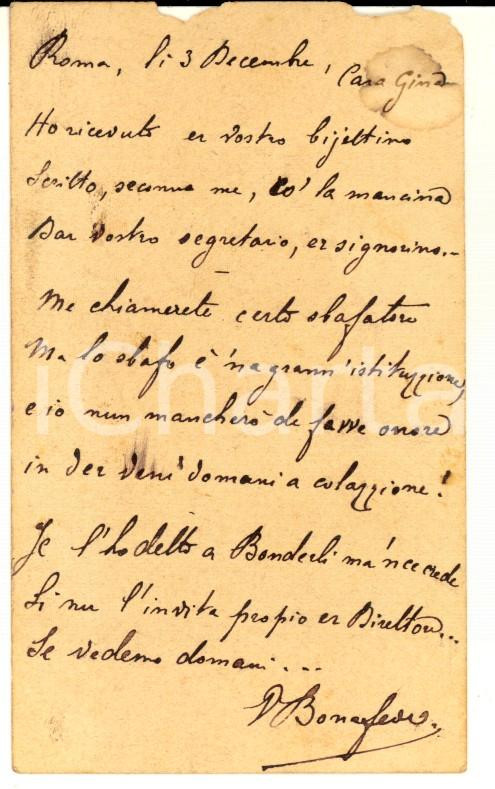 Roma, li 3 Decembre, Cara Gina
Ho ricevuto er vostro bijettino
Scritto, seconno me, co' la mancina
Dar vostro segretario, er signorino..
Me chiamerete certo sbafatore
Ma lo sbafo è 'na grann'istituzzione,
e io nun mancherò de favve onore
in der venì domani a colazzione!
Je l'ho detto a Bonderli ma 'nce crede
Si nu l'invita propio er Direttore...
Se vedemo domani....
iCharta